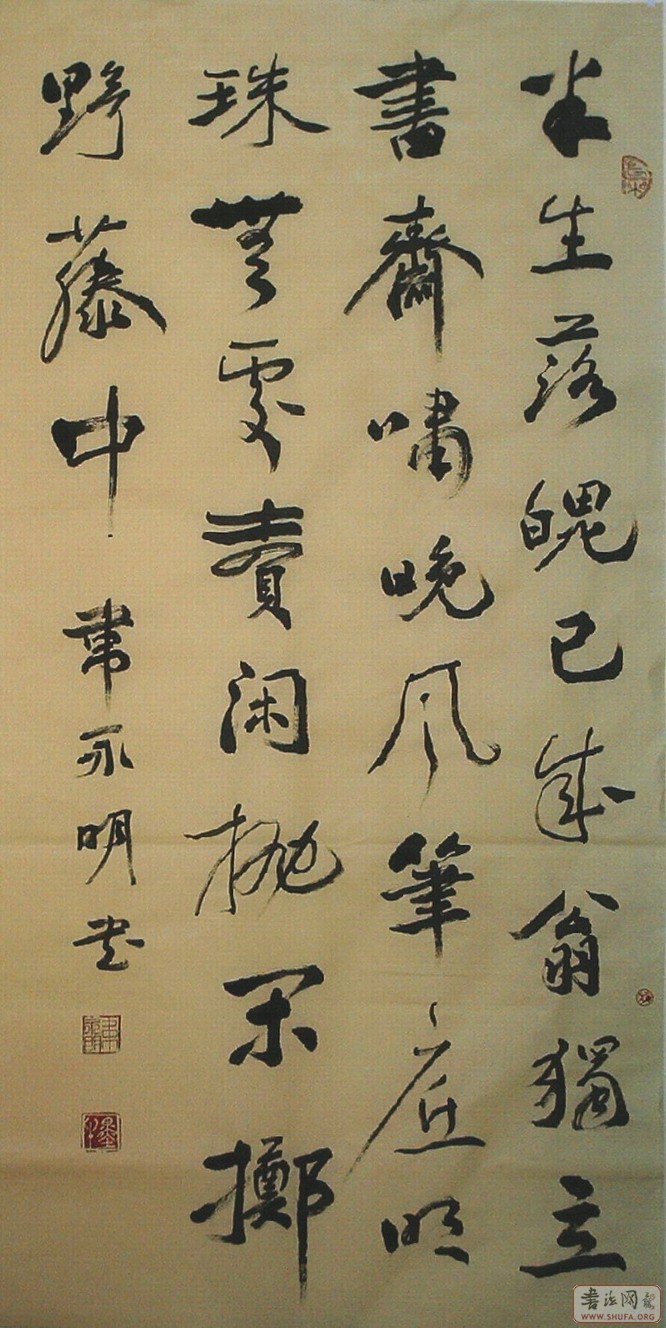 半生落魄已成翁獨立
書齋嘯晚風筆底明
珠無處賣閑拋閑擲
野藤中
永明書
書法网
WWW.SHUFA.ORG